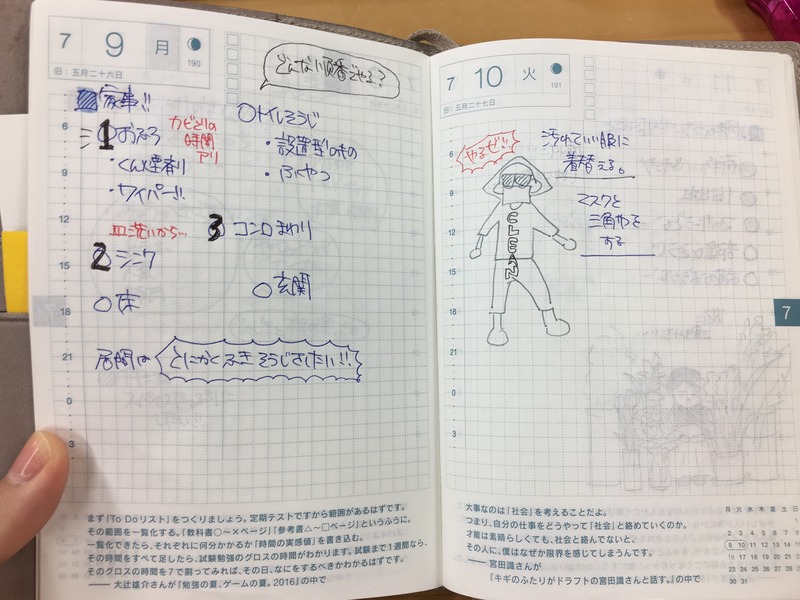 7 9 月
190
旧：五月二十六日
どんな順番でやる？
家事!!
1 おふろ
カビとりの時間アリ
・くん煙剤
・ワイパー!!
○トイレそうじ
・設置型のもの
・ふくやつ
皿洗いから…
2 シンク
3 コンロまわり
○床
○玄関
居間は とにかくふきそうじしたい!!
6
9
12
15
18
21
0
3
まず「To Doリスト」をつくりましょう。定期テストですから範囲があるはずです。
その範囲を一覧化する。「教科書○〜×ページ」「参考書△〜□ページ」というふうに。
一覧化できたら、それぞれに何分かかるか「時間の実感値」を書き込む。
その時間をすべて足したら、試験勉強のグロスの時間がわかります。試験まで1週間なら、
そのグロスの時間を7で割ってみれば、その日、なにをするべきかわかるはずです。
―― 大辻雄介さんが『勉強の夏、ゲームの夏。2016』の中で
7 10 火
191
旧：五月二十七日
やるぜ!!
汚れていい
着替える。
マスクと
三角巾を
する
CLEAN
6
9
12
15
18
21
0
3
7
大事なのは「社会」を考えることだよ。
つまり、自分の仕事をどうやって「社会」と絡めていくのか。
才能は素晴らしくても、社会と絡んでないと、
その人に、僕はなぜか限界を感じてしまうんです。
―― 宮田識さんが
『キギのふたりがドラフトの宮田識さんと話す。』の中で
月 火 水 木 金 土 日
1
2 3 4 5 6 7 8
9 10 11 12 13 14 15
16 17 18 19 20 21 22
23 24 25 26 27 28 29
30 31